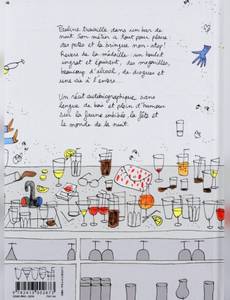 Pauline travaille dans un bar de
nuit. Son métier a tout pour plaire,
des potes et la bringue non-stop!
Revers de la médaille: un boulot
ingrat et épuisant, des magouilles,
beaucoup d'alcool, de drogues et
une vie à l'envers...
Un récit autobiographique sans
langue de bois et plein d'humour
sur la faune imbibée, la fête et
le monde de la nuit.